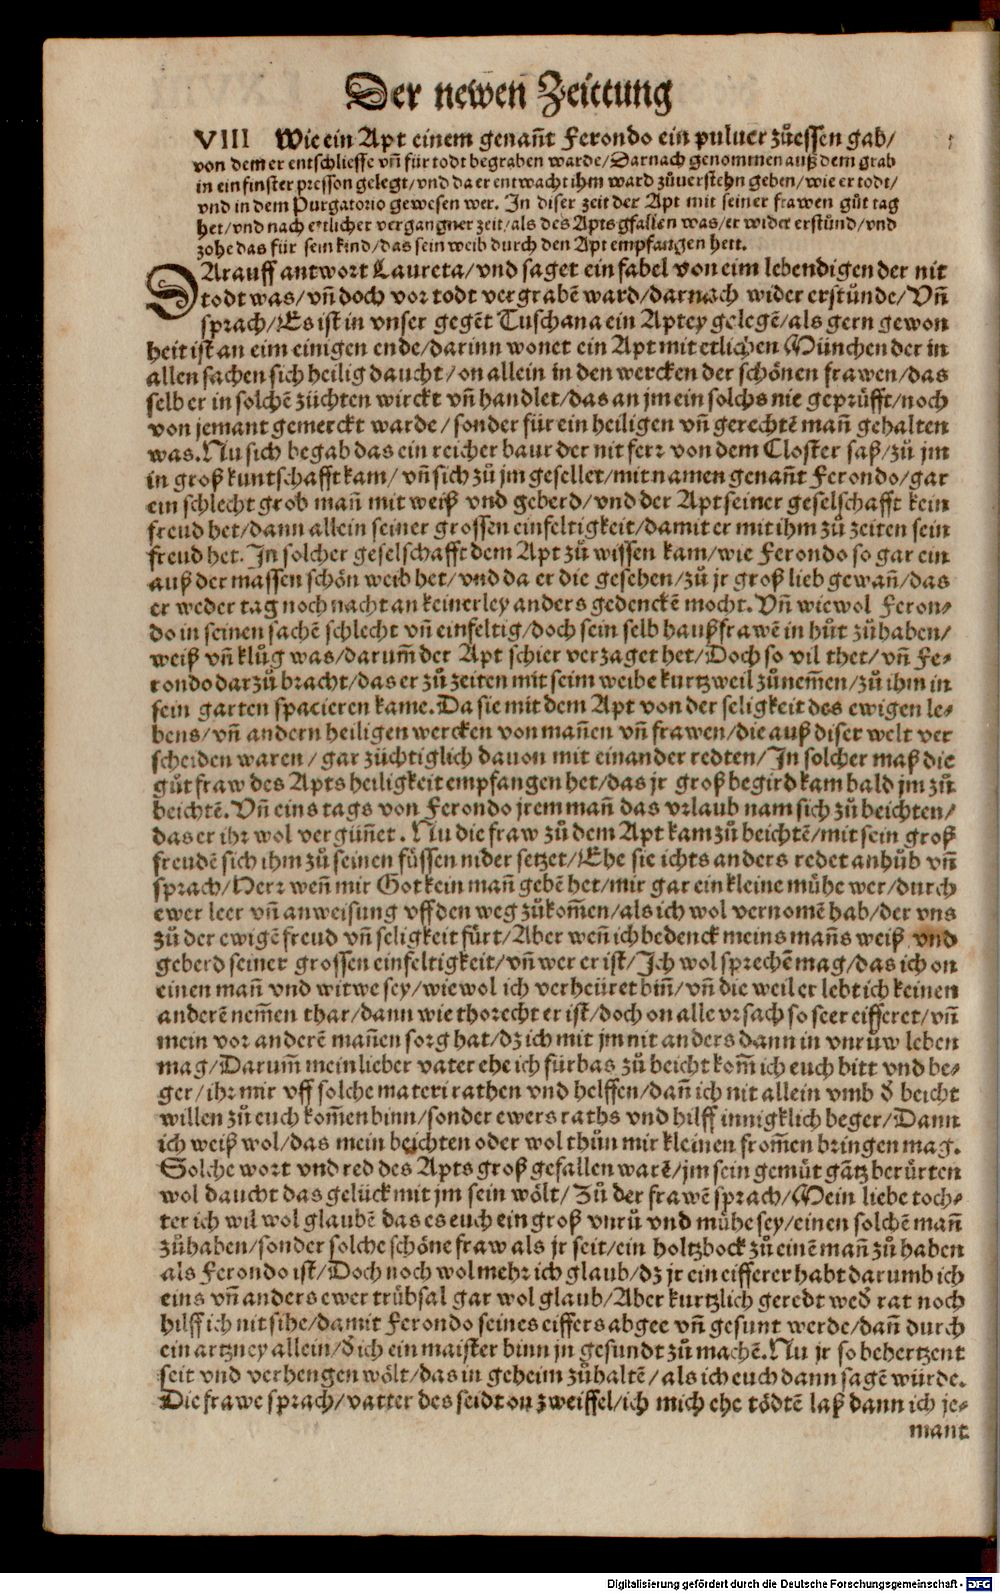 Der newen Zeittung
VIII Wie ein Apt einem genañt Ferondo ein puluer zůessen gab/
von dem er entschlieffe vñ für todt begraben warde/Darnach genommen auß dem grab
in ein finster presson gelegt/vnd da er entwacht ihm ward zůuerstehn geben/wie er todt/
vnd in dem Purgatorio gewesen wer. In diser zeit der Apt mit seiner frawen gůt tag
het/vnd nach etlicher vergangner zeit/als des Apts gfallen was/er wider erstůnd/vnd
zohe das für sein kind/das sein weib durch den Apt empfangen hett.
DArauff antwort Laureta/vnd saget ein fabel von eim lebendigen der nit
todt was/vñ doch vor todt vergrabē ward/darnach wider erstůnde/Vñ
sprach/Es ist in vnser gegēt Tuschana ein Aptey gelegē/als gern gewon
heit ist an eim einigen ende/darinn wonet ein Apt mit etlichen München der in
allen sachen sich heilig daucht/on allein in den wercken der schönen frawen/das
selb er in solchē züchten wirckt vñ handlet/das an jm ein solchs nie geprüfft/noch
von jemant gemerckt warde/sonder für ein heiligen vñ gerechtē mañ gehalten
was. Nu sich begab das ein reicher baur der nit ferr von dem Closter saß/zů jm
in groß kuntschafft kam/vñ sich zů jm gesellet/mit namen genañt Ferondo/gar
ein schlecht grob mañ mit weiß vnd geberd/vnd der Apt seiner geselschafft kein
freud het/dann allein seiner grossen einfeltigkeit/damit er mit ihm zů zeiten sein
freud het. In solcher geselschafft dem Apt zů wissen kam/wie Ferondo so gar ein
auß der massen schön weib het/vnd da er die gesehen/zů jr groß lieb gewañ/das
er weder tag noch nacht an keinerley anders gedenckē mocht. Vñ wiewol Feron-
do in seinen sachē schlecht vñ einfeltig/doch sein selb haußfrawē in hůt zůhaben/
weiß vñ klůg was/darum̃ der Apt schier verzaget het/Doch so vil thet/vñ Fe-
rondo darzů bracht/das er zů zeiten mit seim weibe kurtzweil zůnem̃en/zů ihm in
sein garten spacieren kame. Da sie mit dem Apt von der seligkeit des ewigen le-
bens/vñ andern heiligen wercken von mañen vñ frawen/die auß diser welt ver
scheiden waren/gar züchtiglich dauon mit einander redten/In solcher maß die
gůt fraw des Apts heiligkeit empfangen het/das jr groß begird kam bald jm zů
beichtē. Vñ eins tags von Ferondo jrem mañ das vrlaub nam sich zů beichten/
das er ihr wol vergüñet. Nu die fraw zů dem Apt kam zů beichtē/mit sein groß
freudē sich ihm zů seinen füssen nider setzet/Ehe sie ichts anders redet anhůb vñ
sprach/Herr weñ mir Got kein mañ gebē het/mir gar ein kleine mühe wer/durch
ewer leer vñ anweisung vff den weg zůkom̃en/als ich wol vernomē hab/der vns
zů der ewigē freud vñ seligkeit fürt/Aber weñ ich bedenck meins mañs weiß vnd
geberd seiner grossen einfeltigkeit/vñ wer er ist/Ich wol sprechē mag/das ich on
einen mañ vnd witwe sey/wiewol ich verheüret biñ/vñ die weil er lebt ich keinen
anderē nem̃en thar/dann wie thorecht er ist/doch on alle vrsach so seer eifferet/vñ
mein vor anderē mañen sorg hat/dz ich mit jm nit anders dann in vnrůw leben
mag/Darum̃ mein lieber vater ehe ich fürbas zů beicht kom̃ ich euch bitt vnd be-
ger/ihr mir vff solche materi rathen vnd helffen/dañ ich nit allein vmb d̕ beicht
willen zů euch kom̃en binn/sonder ewers raths vnd hilff innigklich beger/Dann
ich weiß wol/das mein beichten oder wol thůn mir kleinen from̃en bringen mag.
Solche wort vnd red des Apts groß gefallen warē/jm sein gemüt gātz berürten
wol daucht das gelück mit jm sein wölt/Zů der frawē sprach/Mein liebe toch-
ter ich wil wol glaubē das es euch ein groß vnrů vnd mühe sey/einen solchē mañ
zůhaben/sonder solche schöne fraw als jr seit/ein holtzbock zů einē mañ zů haben
als Ferondo ist/Doch noch wol mehr ich glaub/dz jr ein eifferer habt darumb ich
eins vñ anders ewer trübsal gar wol glaub/Aber kurtzlich geredt wed̕ rat noch
hilff ich nit sihe/damit Ferondo seines eiffers abgee vñ gesunt werde/dañ durch
ein artzney allein/d̕ ich ein maister binn jn gesundt zů machē. Nu jr so behertzent
seit vnd verhengen wölt/das in geheim zůhaltē/als ich euch dann sagē würde.
Die frawe sprach/vatter des seidt on zweiffel/ich mich ehe tödtē laß dann ich je-
mant
Digitalisierung gefördert durch die Deutsche Forschungsgemeinschaft - DFG